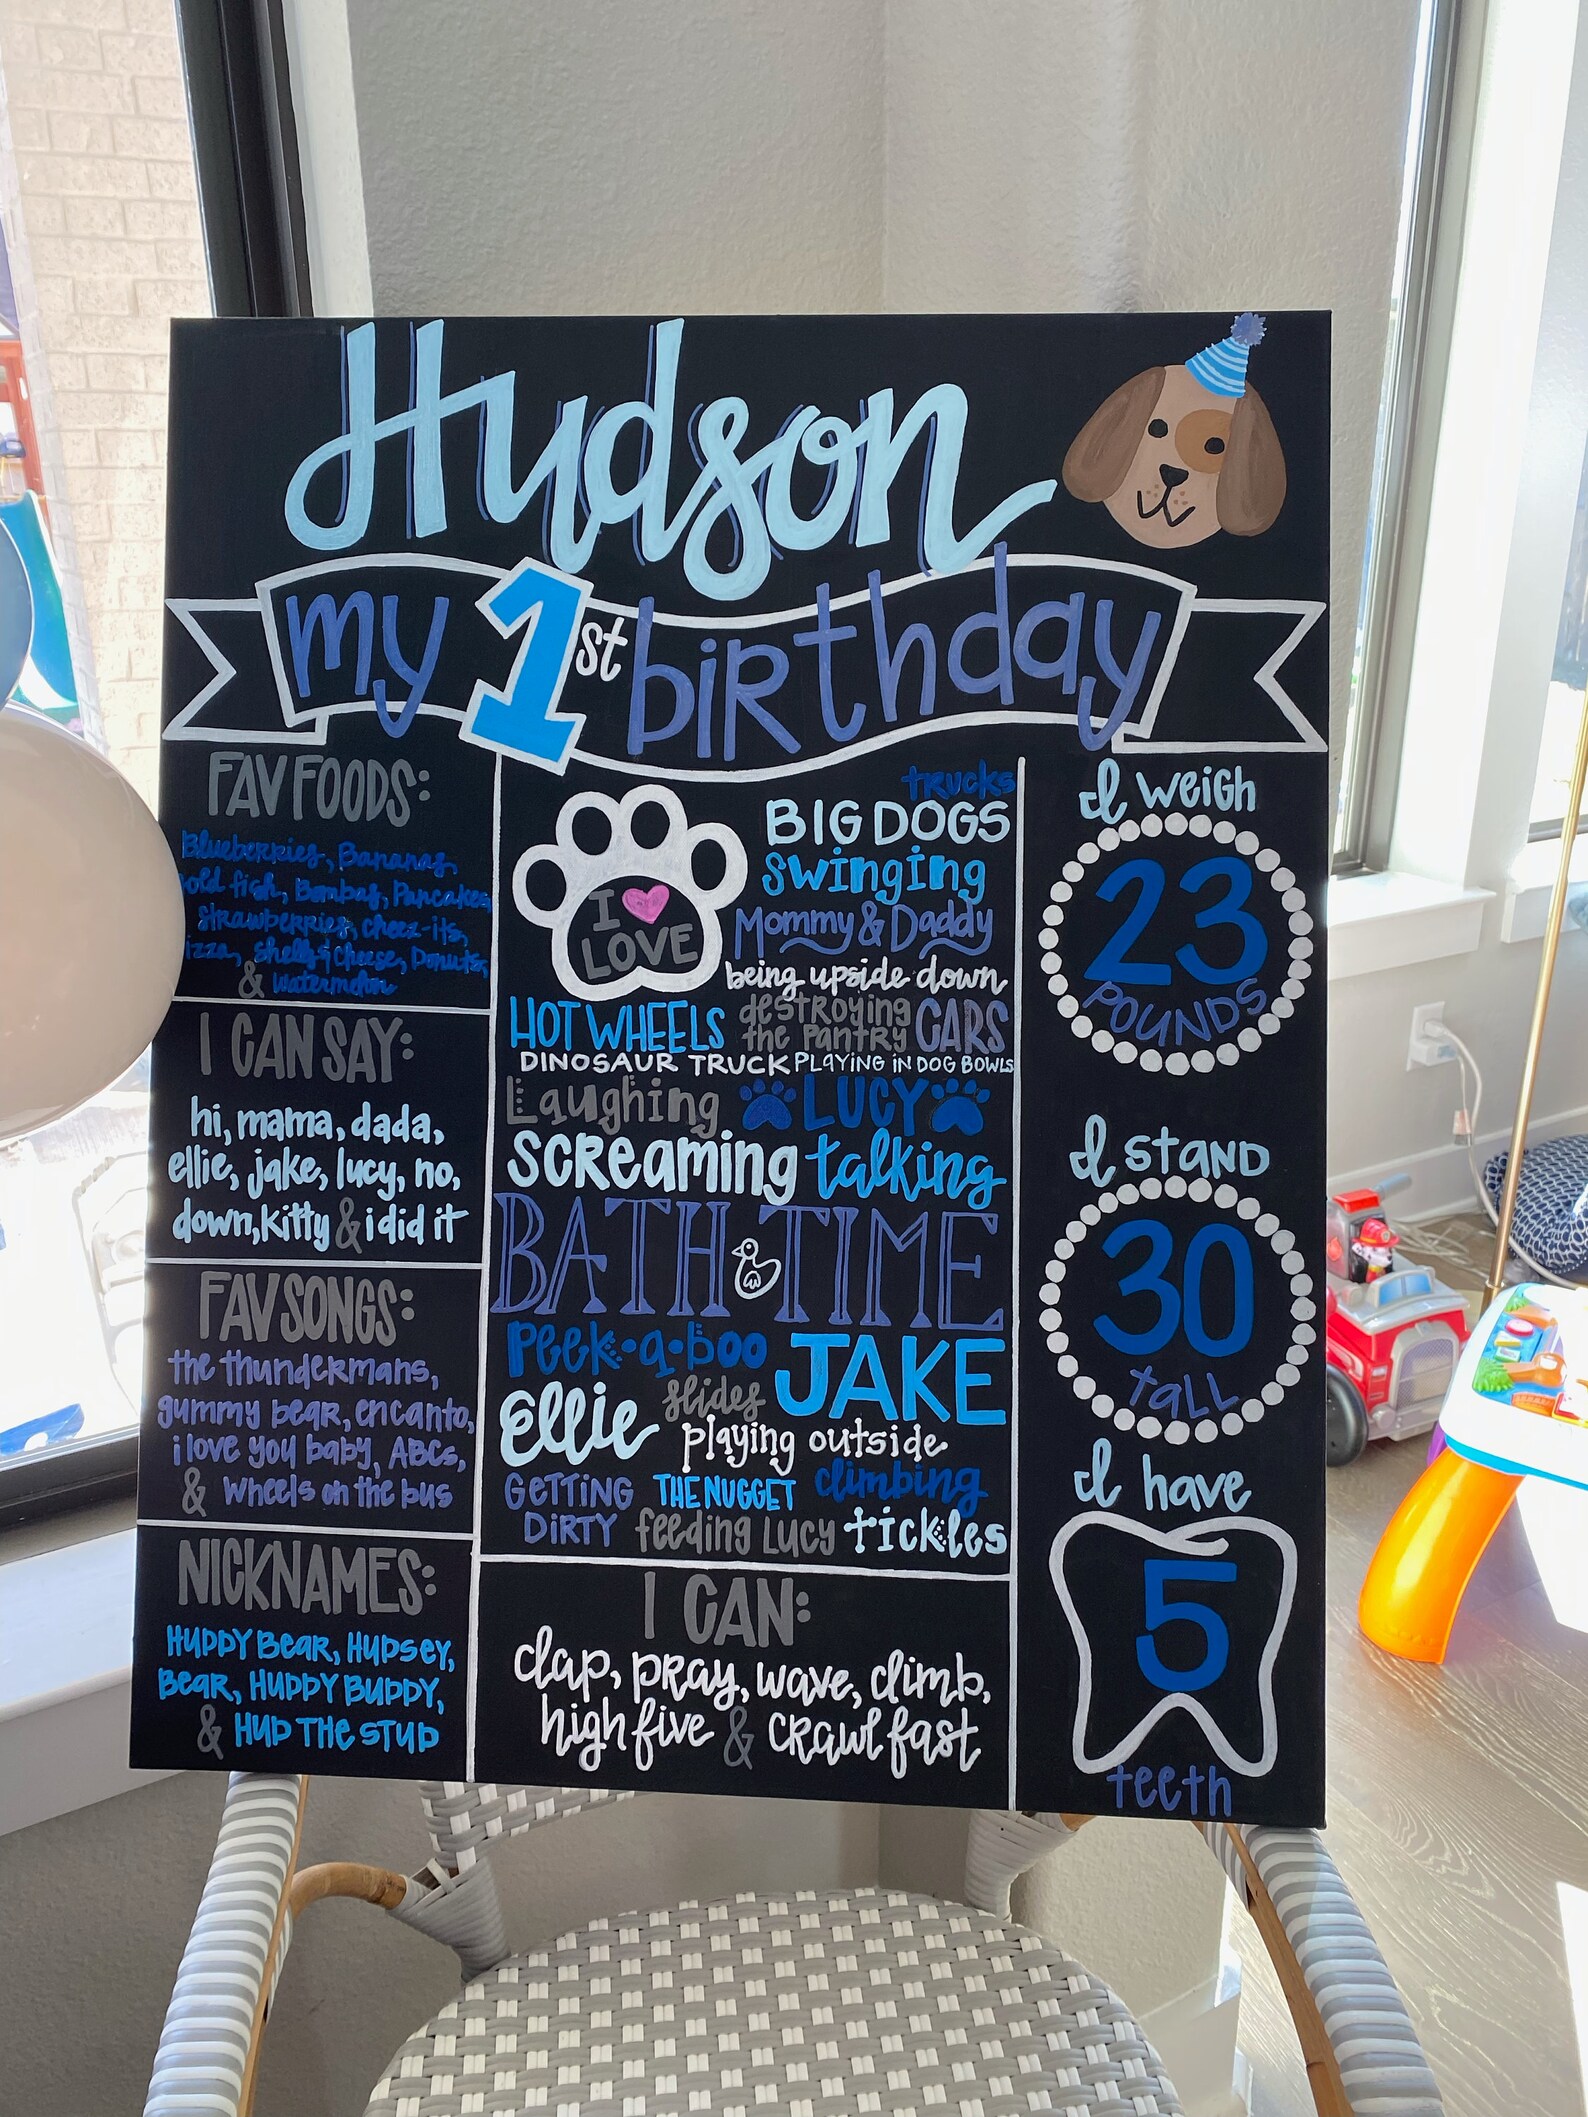 Hudson
my 1st birthday
FAV FOODS:
Blueberries, Bananas,
old fish, Bombas, Pancakes
strawberries, cheez-its,
izza, shells & cheese, Donuts,
& watermelon
I CAN SAY:
hi, mama, dada,
ellie, jake, lucy, no,
down, kitty & i did it
FAV SONGS:
the thundermans,
gummy bear, encanto,
i love you baby, ABCs,
& wheels on the bus
NICKNAMES:
HUDDY BEAR, HUDSEY,
BEAR, HUDDY BUDDY,
& HUD THE STUD
I LOVE
trucks
BIG DOGS
swinging
Mommy & Daddy
being upside down
HOT WHEELS
destroying
the pantry
CARS
DINOSAUR TRUCK PLAYING IN DOG BOWLS
Laughing LUCY
SCREAMING talking
BATH TIME
Peek-a-boo JAKE
Ellie slides
playing outside
GETTING
DIRTY
THE NUGGET climbing
feeding LUCY tickles
I CAN:
clap, pray, wave, climb,
high five & crawl fast
I weigh
23
POUNDS
I STAND
30
tall
I have
5
teeth